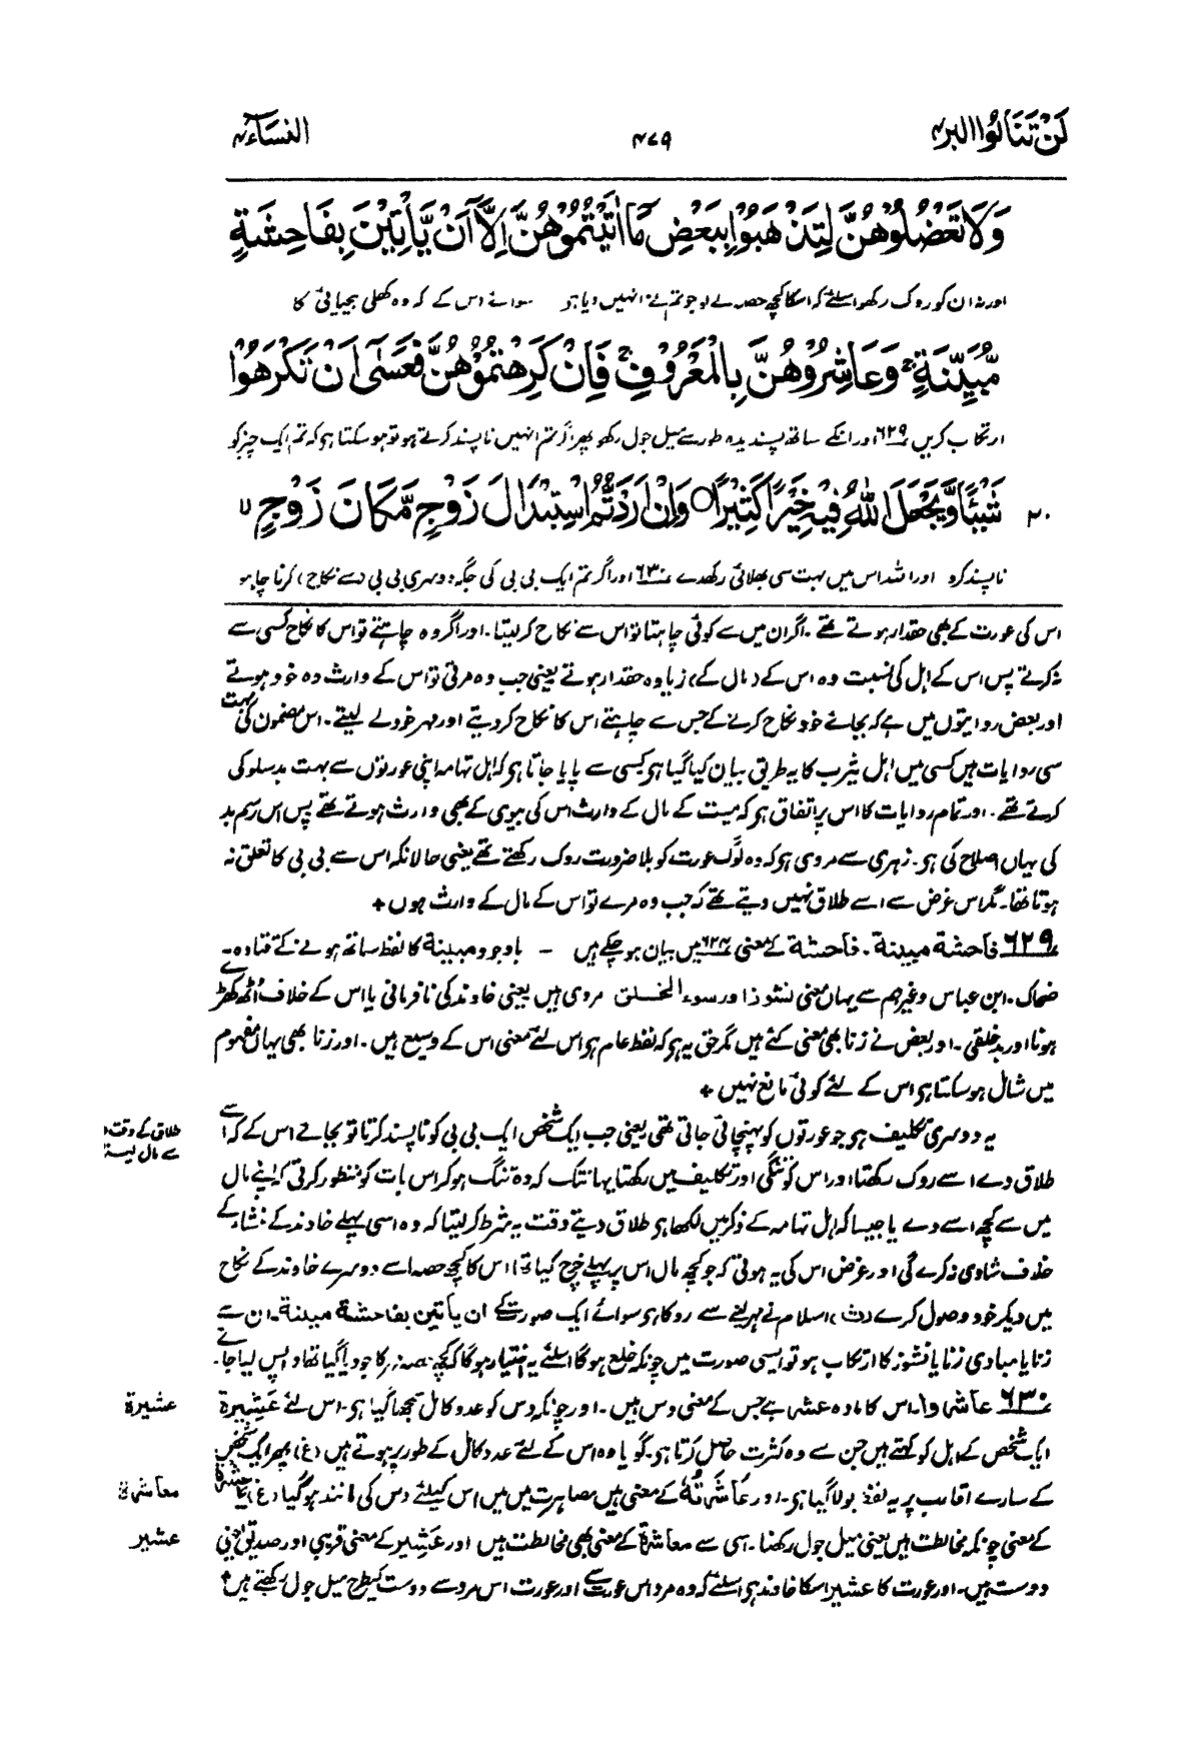 لَنْ تَنَالُوا الْبِرَّ ۴
۴۷۹
النِّسَآء ۴
وَلَا تَعْضُلُوْهُنَّ لِتَذْهَبُوْا بِبَعْضِ مَآ اٰتَيْتُمُوْهُنَّ اِلَّآ اَنْ يَّاْتِيْنَ بِفَاحِشَةٍ
اور نہ ان کو روک رکھو اسلئے کہ اسکا کچھ حصہ لے لو جو تم نے انہیں دیا ہو سوائے اس کے کہ وہ کھلی بیحیائی کا
مُّبَيِّنَةٍ ۚ وَعَاشِرُوْهُنَّ بِالْمَعْرُوْفِ ۚ فَاِنْ كَرِهْتُمُوْهُنَّ فَعَسٰٓى اَنْ تَكْرَهُوْا
ارتکاب کریں ۶۲۹ اور انکے ساتھ پسندیدہ طور سے میل جول رکھو پھر اگر تم انہیں ناپسند کرتے ہو تو ہو سکتا ہو کہ تم ایک چیز کو
۲۰ شَيْـًٔا وَّيَجْعَلَ اللّٰهُ فِيْهِ خَيْرًا كَثِيْرًا ○ وَاِنْ اَرَدْتُّمُ اسْتِبْدَالَ زَوْجٍ مَّكَانَ زَوْجٍ ۙ
ناپسند کرو اور اللہ اس میں بہت سی بھلائی رکھدے ۶۳۰ اور اگر تم ایک بی بی کی جگہ دوسری بی بی (سے نکاح) کرنا چاہو
اس کی عورت کے بھی حقدار ہوتے تھے۔ اگر ان میں سے کوئی چاہتا تو اس سے نکاح کر لیتا۔ اور اگر وہ چاہتے تو اس کا نکاح کسی سے
نہ کرتے پس اس کے اہل کی نسبت وہ اس کے (مال کے) زیادہ حقدار ہوتے یعنی جب وہ مرتی تو اس کے وارث وہ خود ہوتے
اور بعض روایتوں میں ہے کہ بجائے خود نکاح کرنے کے جس سے چاہتے اس کا نکاح کر دیتے اور مہر خود لے لیتے۔ اس مضمون کی بہت
سی روایات ہیں کسی میں اہل یثرب کا یہ طریق بیان کیا گیا ہو کسی سے پایا جاتا ہو کہ اہل تہامہ اپنی عورتوں سے بہت بدسلوکی
کرتے تھے۔ اور تمام روایات کا اس پر اتفاق ہو کہ میت کے مال کے وارث اس کی بیوی کے بھی وارث ہوتے تھے پس اس رسم بد
کی یہاں اصلاح کی ہو۔ زہری سے مروی ہو کہ وہ لوگ عورت کو بلا ضرورت روک رکھتے تھے یعنی حالانکہ اس سے بی بی کا تعلق نہ
ہوتا تھا۔ مگر اس غرض سے اسے طلاق نہیں دیتے تھے کہ جب وہ مرے تو اس کے مال کے وارث ہوں +
۶۲۹ فاحشة مبينة۔ فاحشة کے معنی میں بیان ہو چکے ہیں – باوجود مبينة کا لفظ ساتھ ہونے کے قتادہ۔
ضحاک۔ ابن عباس وغیرہم سے یہاں معنی نشوز اور سوء الخلق مروی ہیں یعنی خاوند کی نافرمانی یا اس کے خلاف اُٹھ کھڑے
ہونا اور بدخلقی۔ اور بعض نے زنا بھی معنی کئے ہیں مگر حق یہ ہو کہ لفظ عام ہو اس لئے معنی اس کے وسیع ہیں۔ اور زنا بھی یہاں مفہوم
میں شامل ہو سکتا ہو اس کے لئے کوئی مانع نہیں +
یہ دوسری تکلیف ہو جو عورتوں کو پہنچائی جاتی تھی یعنی جب ایک شخص ایک بی بی کو ناپسند کرتا تو بجائے اس کے کہ اسے
طلاق کے وقت
سے مال لینا
طلاق دے اسے روک رکھتا اور اس کو تنگی اور تکلیف میں رکھتا یہانتک کہ وہ تنگ ہو کر اس بات کو منظور کرتی کہ اپنے مال
میں سے کچھ اسے دے یا جیسا کہ اہل تہامہ کے ذکر میں لکھا ہو طلاق دیتے وقت یہ شرط کر لیتا کہ وہ اسی پہلے خاوند کے منشاء کے
خلاف شادی نہ کرے گی اور غرض اس کی یہ ہوتی کہ جو کچھ مال اس پر پہلے خرچ کیا تھا اس کا کچھ حصہ اسے دوسرے خاوند کے نکاح
میں دیکر خود وصول کرے (ث) اسلام نے مہر لینے سے روکا ہو سوائے ایک صورت کے ان یأتین بفاحشة مبينة۔ ان سے
زنا یا مبادی زنا یا نشوز کا ارتکاب ہو تو ایسی صورت میں چونکہ خلع ہوگا اسلئے یہ اختیار ہوگا کہ کچھ حصہ مہر کا جو دیا گیا تھا واپس لیا جائے۔
۶۳۰ عاشروا۔ اس کا مادہ عشر ہے جس کے معنی دس ہیں۔ اور چونکہ دس کو عدد کامل سمجھا گیا ہو۔ اس لئے عَشِيرة
عشيرة
ایک شخص کے اہل کو کہتے ہیں جن سے وہ کثرت حاصل کرتا ہو گویا وہ اس کے لئے عدد کامل کے طور پر ہوتے ہیں (غ) پھر ایک شخص
کے سارے اقارب پر یہ لفظ بولا گیا ہو۔ اور عَاشَرتُهٗ کے معنی ہیں مصاہرت میں میں اس کیلئے دس کی مانند ہو گیا (غ)
معاشرة
کے معنی چونکہ مخالطت ہیں یعنی میل جول رکھنا۔ اسی سے معاشرة کے معنی بھی مخالطت ہیں اور عَشِیر کے معنی قریبی اور صدیق یعنی
عشير
دوست ہیں۔ اور عورت کا عشیر اسکا خاوند ہو اسلئے کہ وہ مرد اس عورت سے اور عورت اس مرد سے دوست کیطرح میل جول رکھتے ہیں +